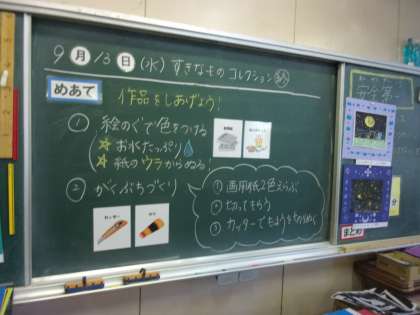 9月13日(水) すきなものコレクション
めあて
作品をしあげよう!
① 絵のぐで色をつける
☆お水たっぷり
☆紙のウラからぬる!
② がくぶちづくり
① 画用紙2色えらぶ
② 切ってもらう
③ カッターで
カッター
のり
まとめ
分